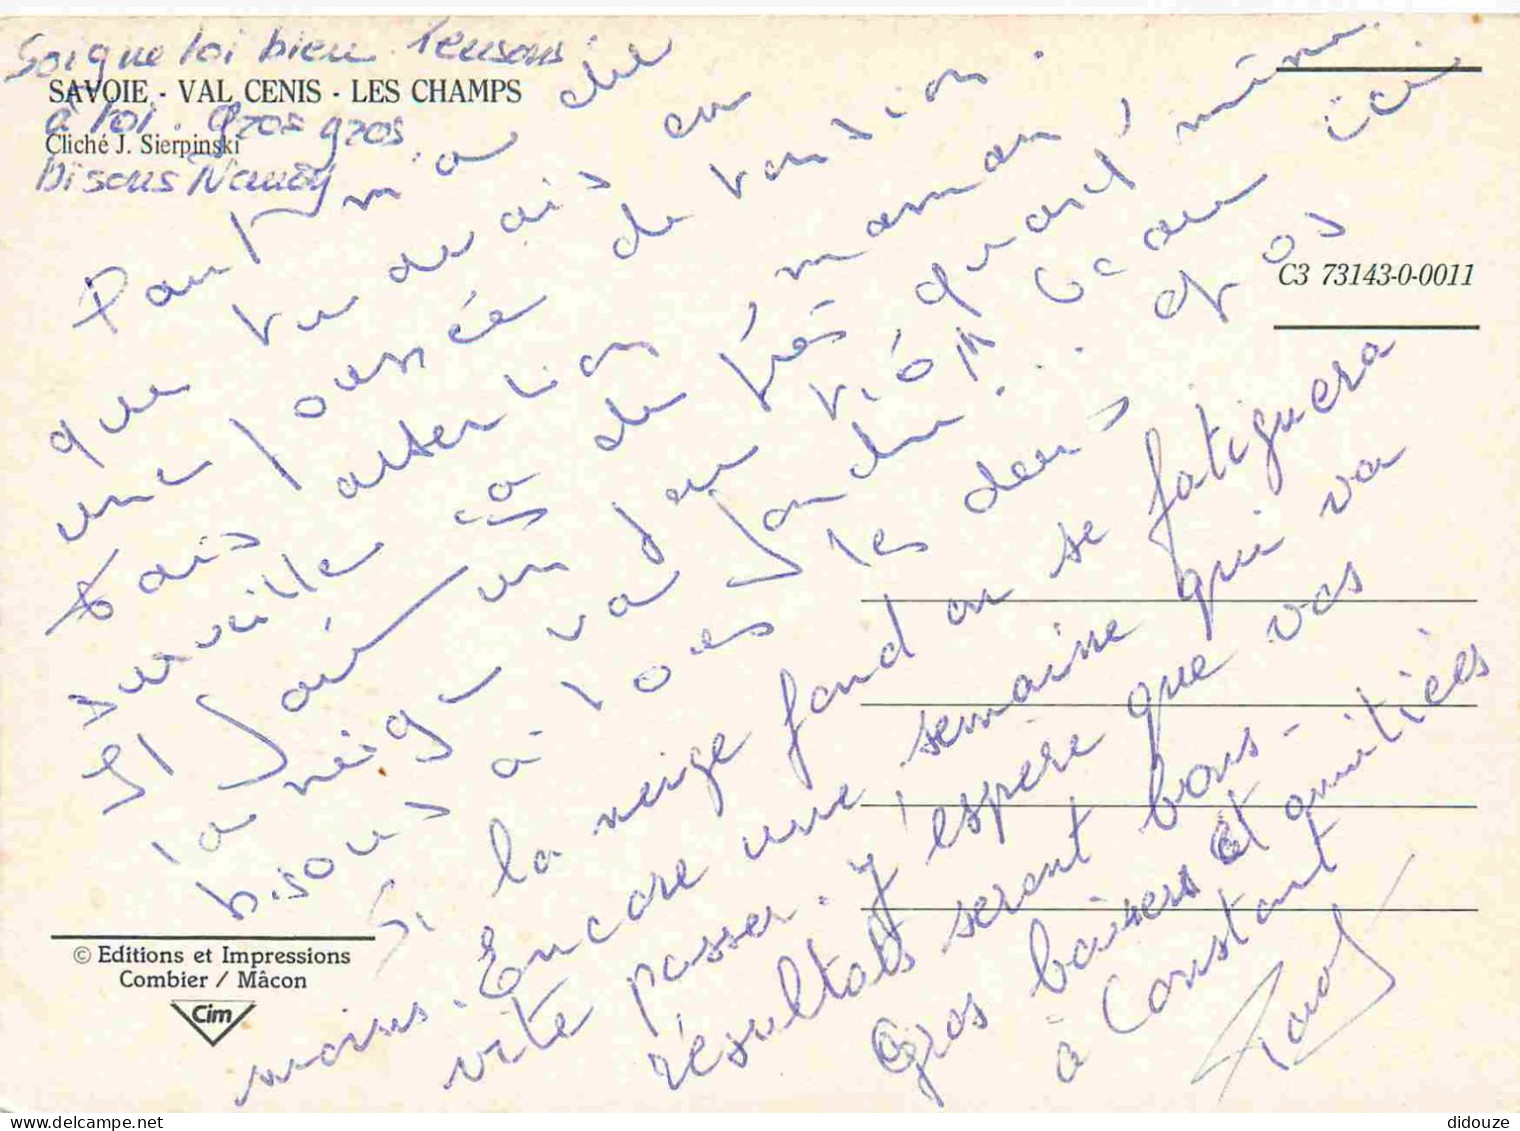 Soigne toi bien Pensons
SAVOIE - VAL CENIS - LES CHAMPS
à toi. gros gros.
Cliché J. Sierpinski
Bisous
C3 73143-0-0011
m'a dit
que tu avais eu
une poussée de tension.
Fais attention, maman,
surveille ça de très
un peu quand même
la neige va
beau ici.
bisous à tous les deux. gros
Si la neige fond on se fatiguera
moins. Encore une semaine qui va
vite passer. J'espère que vos
résultats seront bons.
Gros baisers et amitiées
à Constant
© Editions et Impressions
Combier / Mâcon
Cim
didouze